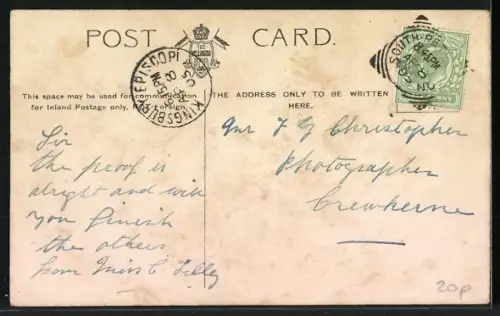 POST CARD.
This space may be used for communication
for Inland Postage only, Foreign.
THE ADDRESS ONLY TO BE WRITTEN
HERE.
KINGSBURY EPISCOPI
SOUTH PE
Sir
the proof is
alright and will
you finish
the others
from Miss C Tilley
Mr F G Christopher
Photographer
Crewkerne
20p